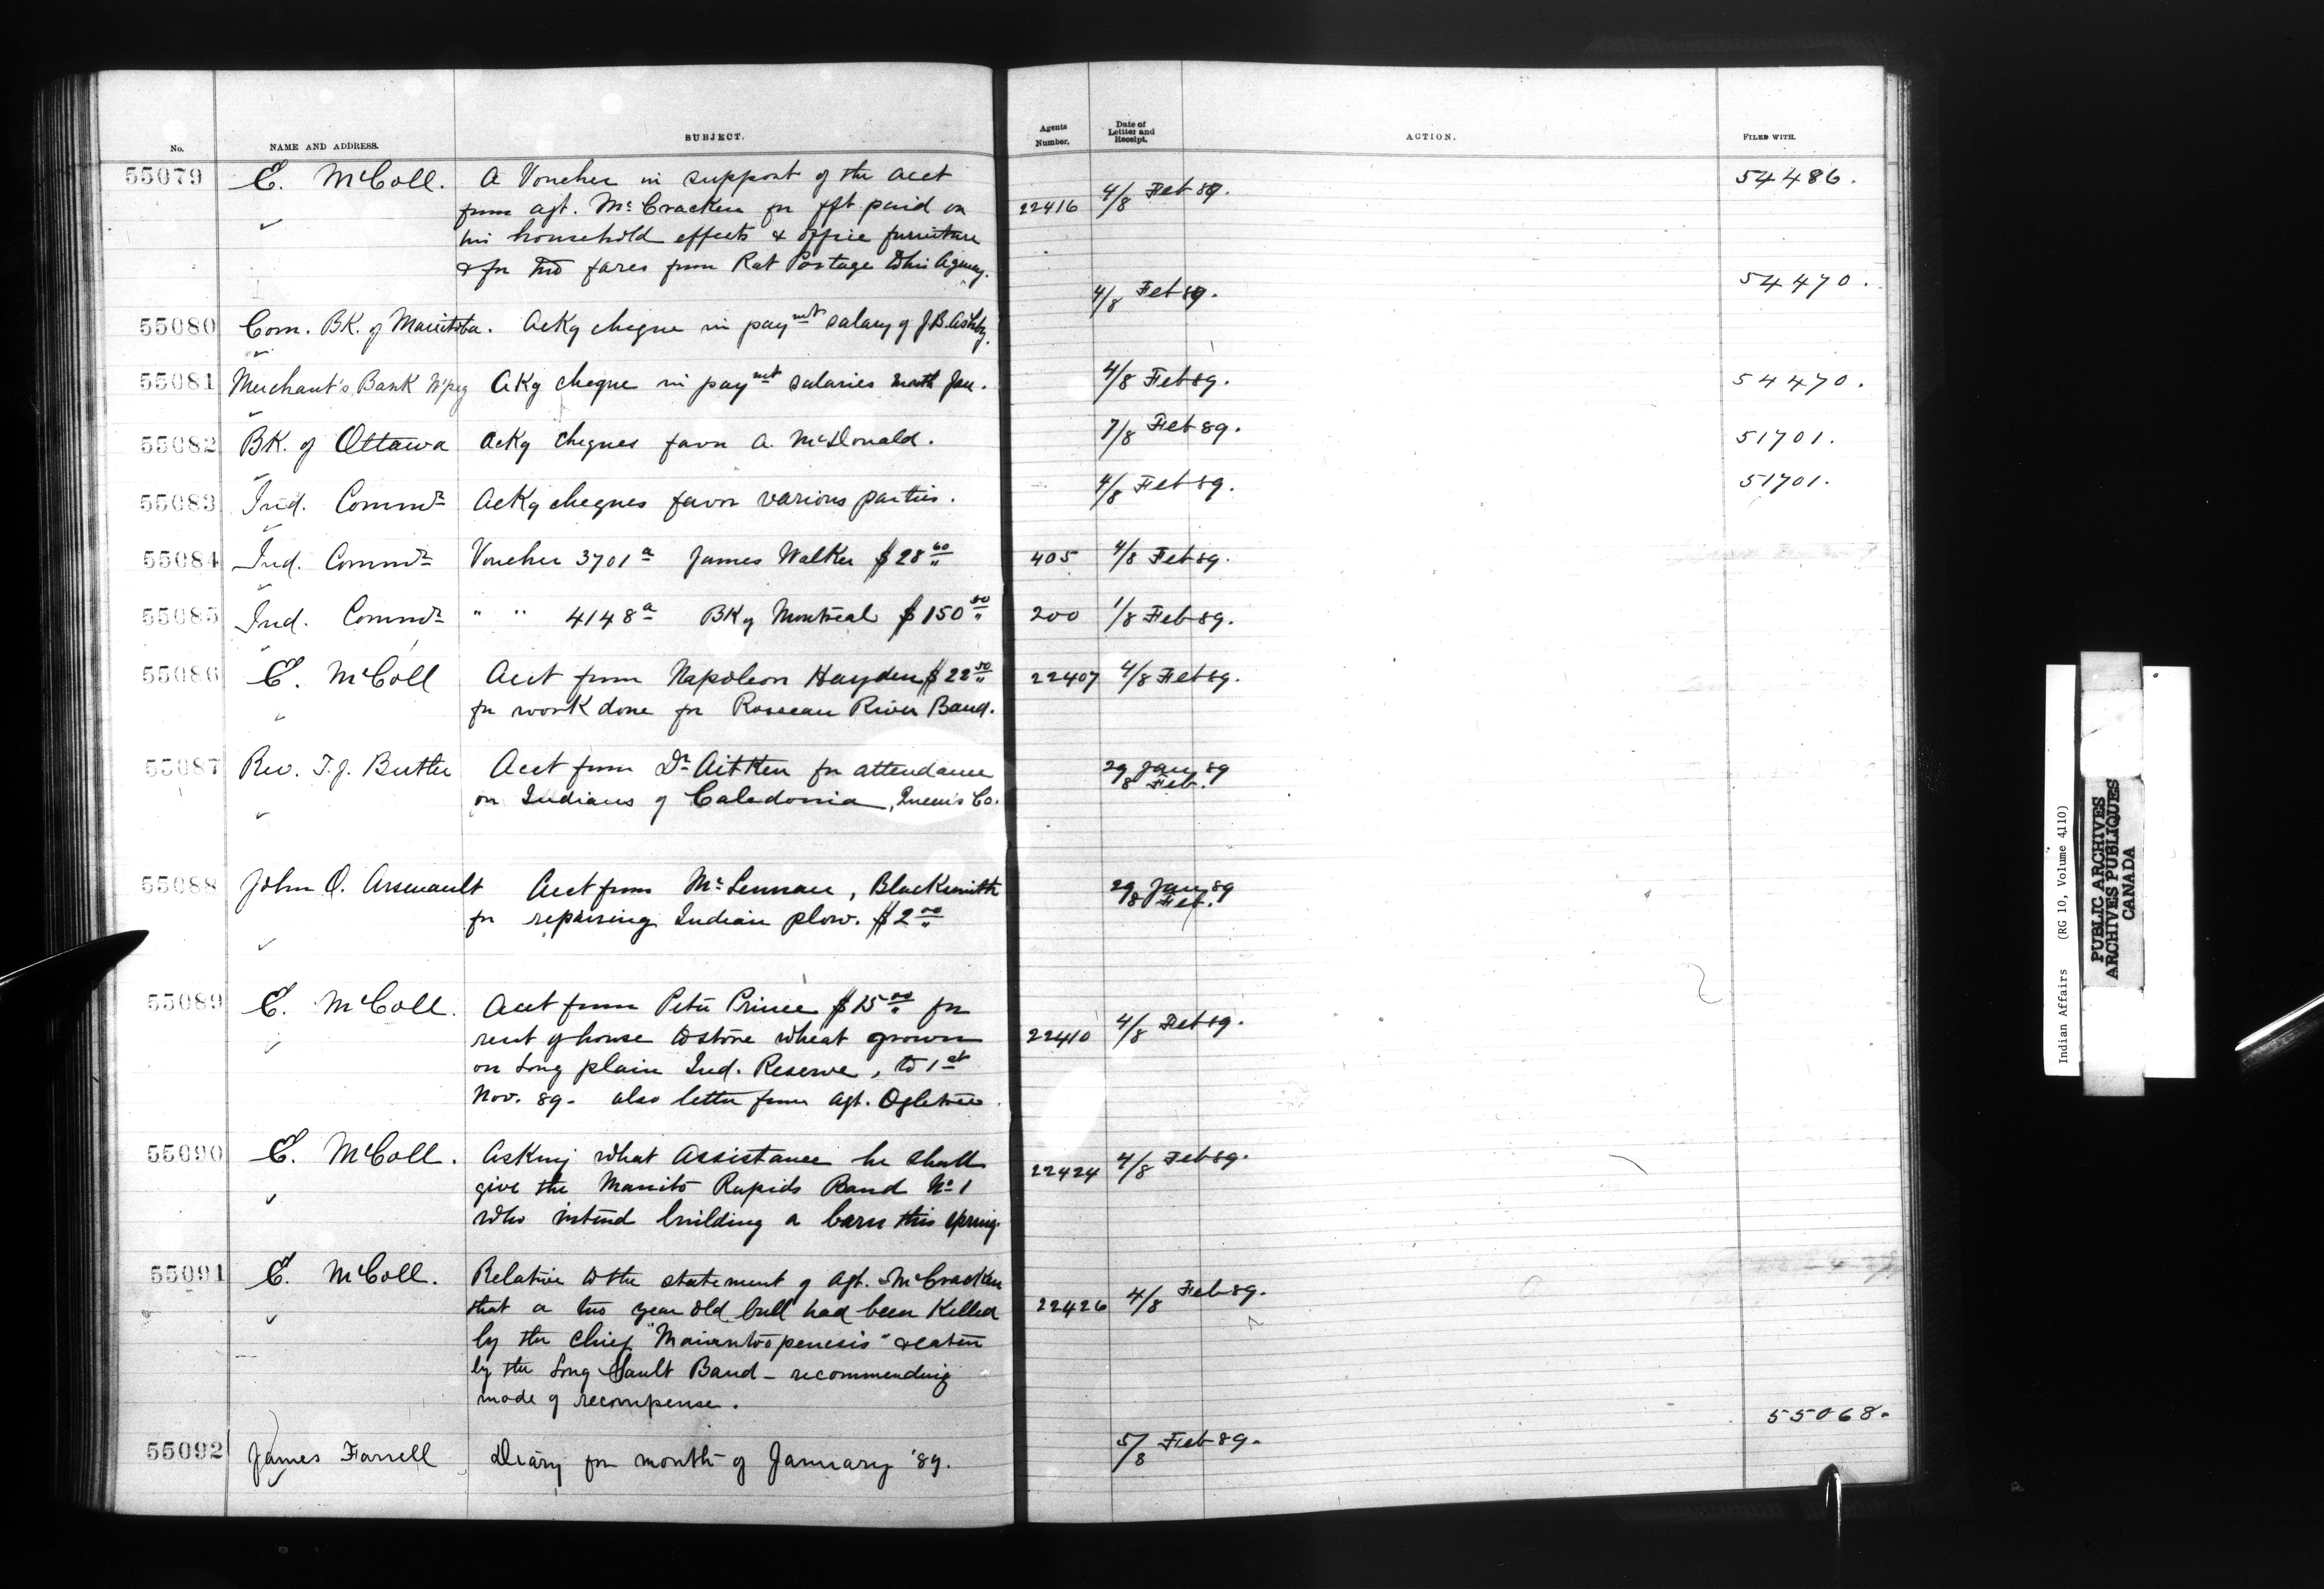 No.
NAME AND ADDRESS.
SUBJECT.
Agents Number.
Date of Letter and Receipt.
ACTION.
FILED WITH.
55079 E. McColl. A Voucher in support of the acct 54486.
from agt. McCracken for frt paid on 22416 4/8 Feb 89.
his household effects & office furniture
& for two fares from Rat Portage to his Agency.
55080 Com. BK. of Manitoba. Ackg cheque in paymt salary of J.B. Ashby. 4/8 Feb 89. 54470.
55081 Merchant's Bank W'peg Akg cheque in paymt salaries month Jan. 4/8 Feb 89. 54470.
55082 BK. of Ottawa Ackg cheques favor A. McDonald. 7/8 Feb 89. 51701.
55083 Ind. Commr Ackg cheques favor various parties. 4/8 Feb 89. 51701.
55084 Ind. Commr Voucher 3701a James Walker $28 60 405 4/8 Feb 89.
55085 Ind. Commr " " 4148a BK of Montreal $150 50 200 1/8 Feb 89.
55086 E. McColl Acct from Napoleon Hayden $22 50 22407 4/8 Feb 89.
for work done for Roseau River Band.
55087 Rev. T.J. Butler Acct from Dr Aitken for attendance 29 Jan 89
on Indians of Caledonia, Queen's Co. 8 Feb.
55088 John O. Arsenault Acct from McLennan, Blacksmith 29 Jan 89
for repairing Indian plow. $2 00 8 Feb.
55089 E. McColl. Acct from Peter Prince $15 00 for
rent of house to store wheat grown 22410 4/8 Feb 89.
on Long plain Ind. Reserve, to 1st
Nov. 89. also letter from Agt. Ogletree.
55090 E. McColl. Asking what assistance he shall
give the Manito Rapids Band No 1 22424 4/8 Feb 89.
who intend building a barn this spring.
55091 E. McColl. Relative to the statement of Agt. McCracken
that a two year old bull had been killed 22426 4/8 Feb 89.
by the Chief "Maiantoopenesis" & eaten
by the Long Sault Band - recommending
mode of recompense.
55092 James Farrell Diary for month of January '89. 5/8 Feb 89. 55068.
Indian Affairs (RG 10, Volume 4110)
PUBLIC ARCHIVES
ARCHIVES PUBLIQUES
CANADA